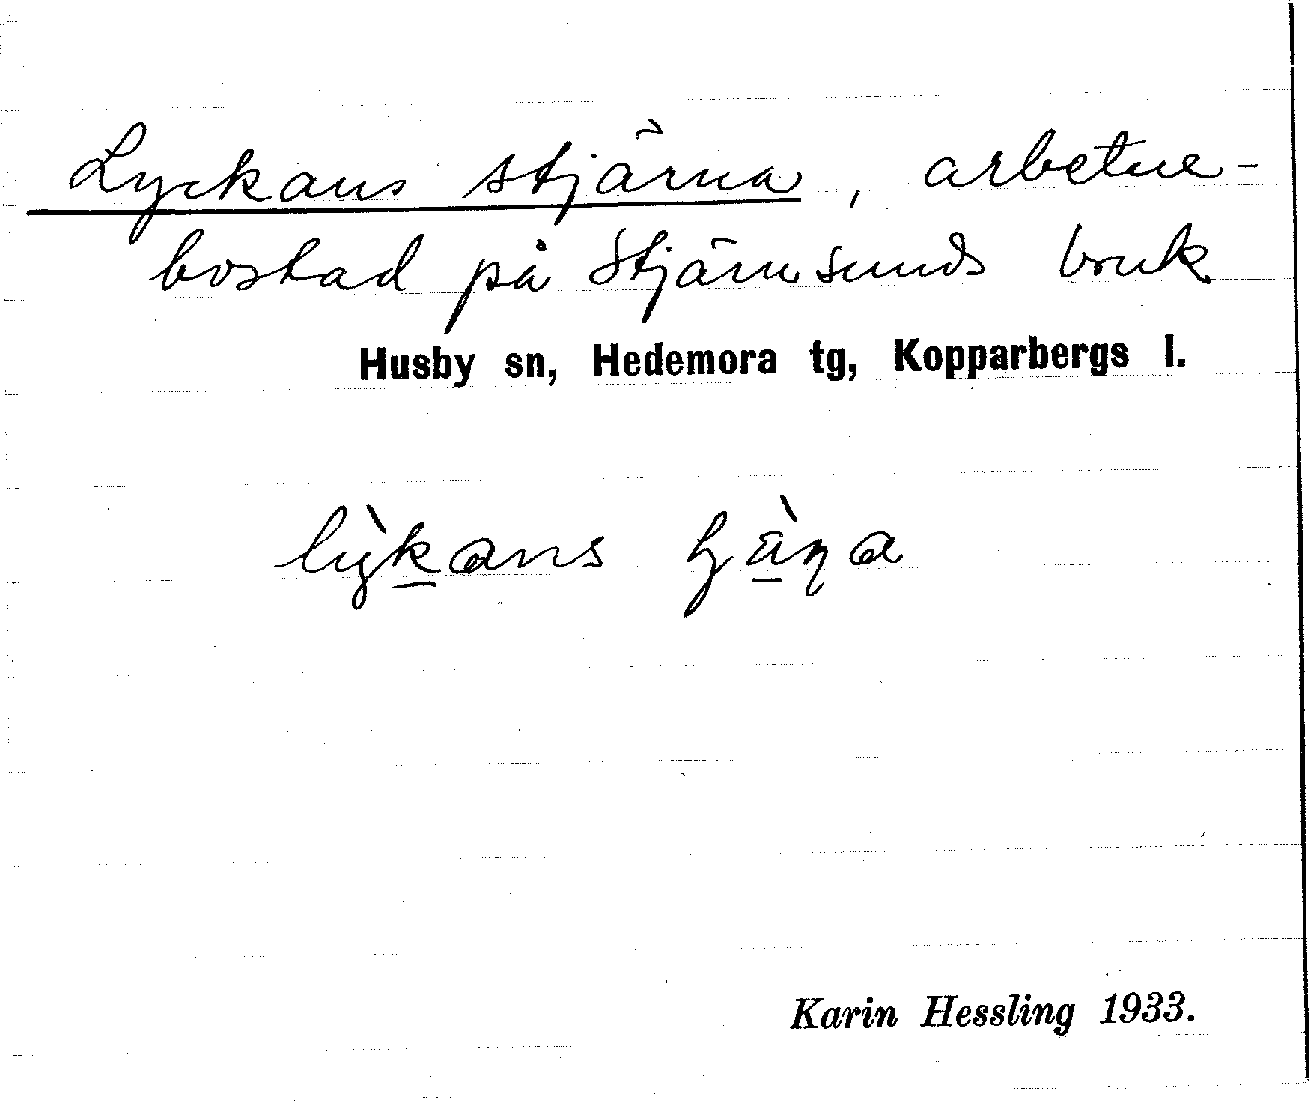 Lyckans stjärna, arbetare-
bostad på Stjärnsunds bruk
Husby sn, Hedemora tg, Kopparbergs l.
lỳkans
Karin Hessling 1933.